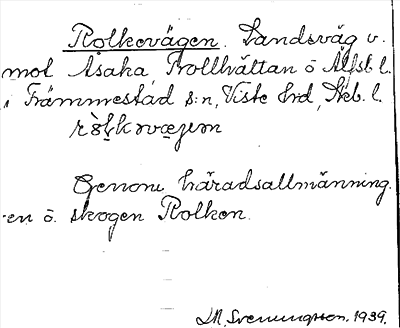 Rolkevägen. Landsväg v.
mot Åsaka, Trollhättan o Älfsb. l.
i Främmestad s:n, Viste hrd, Skb. l.
Genom häradsallmänning-
en o. skogen Rolken.
Svenungsson. 1939.